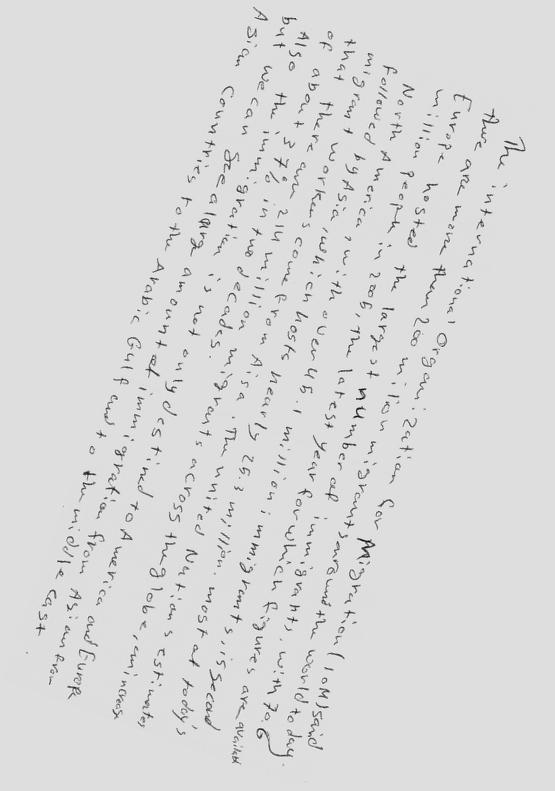 The international Organization for Migration (IOM) said
there are more than 200 million migrants around the world today.
Europe hosted the largest number of immigrants, with 70.6
million people in 2005, the latest year for which figures are available
North America, with over 45.1 million immigrants, is second
followed by Asia, which hosts nearly 25.3 million. most of today's
migrant workers come from Aisa. The united Nations estimates
that there are 214 million migrants across the globe, an increase
of about 37% in two decades.
Also the immigration is not only destined to America and Europe
but we can see a large amount of immigration from Asian from
Asian countries to the Arabic Gulf and to the middle East.